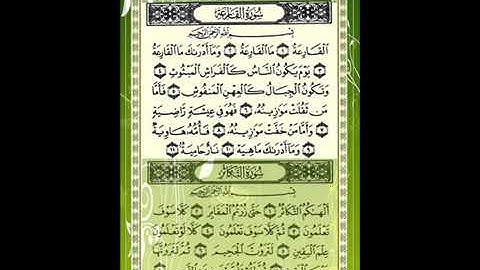 سُورَةُ القَارِعَة
بِسْمِ اللَّهِ الرَّحْمَٰنِ الرَّحِيمِ
الْقَارِعَةُ ١ مَا الْقَارِعَةُ ٢ وَمَا أَدْرَىٰكَ مَا الْقَارِعَةُ
٣ يَوْمَ يَكُونُ النَّاسُ كَالْفَرَاشِ الْمَبْثُوثِ ٤
وَتَكُونُ الْجِبَالُ كَالْعِهْنِ الْمَنفُوشِ ٥ فَأَمَّا
مَن ثَقُلَتْ مَوَازِينُهُ ٦ فَهُوَ فِي عِيشَةٍ رَّاضِيَةٍ
٧ وَأَمَّا مَنْ خَفَّتْ مَوَازِينُهُ ٨ فَأُمُّهُ هَاوِيَةٌ
٩ وَمَا أَدْرَىٰكَ مَا هِيَهْ ١٠ نَارٌ حَامِيَةٌ ١١
سُورَةُ التَّكَاثُر
بِسْمِ اللَّهِ الرَّحْمَٰنِ الرَّحِيمِ
أَلْهَىٰكُمُ التَّكَاثُرُ ١ حَتَّىٰ زُرْتُمُ الْمَقَابِرَ ٢ كَلَّا سَوْفَ
تَعْلَمُونَ ٣ ثُمَّ كَلَّا سَوْفَ تَعْلَمُونَ ٤ كَلَّا لَوْ تَعْلَمُونَ
عِلْمَ الْيَقِينِ ٥ لَتَرَوُنَّ الْجَحِيمَ ٦ ثُمَّ لَتَرَوُنَّهَا